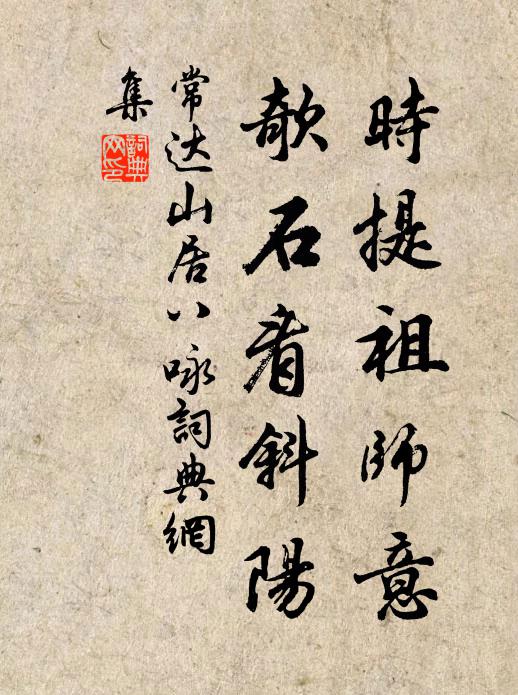 時提祖師意
欹石看斜陽
常达山居八咏詞典網
集
詞典
网印